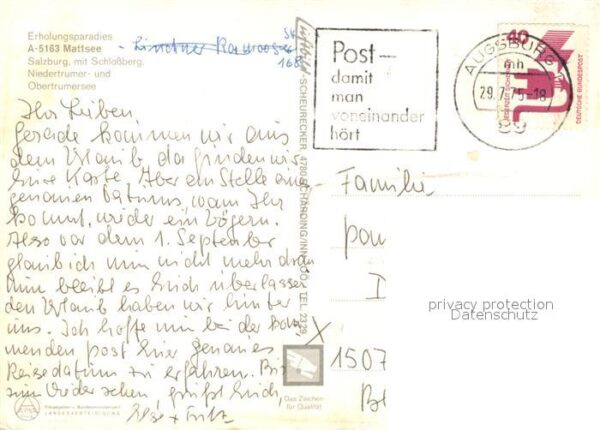 Erholungsparadies
A-5163 Mattsee
Salzburg, mit Schloßberg,
Niedertrumer- und
Obertrumersee
Ihr Lieben,
Gerade kommen wir aus
dem Urlaub da finden wir
Eure Karte. Aber an Stelle eines
genauen Datums, wann Ihr
kommt, wieder ein Zögern.
Also vor dem 1. September
glaub ich nun nicht mehr dran
nun bleibt es Euch überlassen
den Urlaub haben wir hinter
uns. Ich hoffe nun bei der kom
menden Post Euer genaues
Reisedatum zu erfahren. Bis
zum Wiedersehen, grüßt Euch,
Else + Fritz
LANDESVERTEIDIGUNG
Luftbild-SCHEURECKER, 4780 SCHÄRDING/INN, TEL. 2329
Post –
damit
man
voneinander
hört
AUGSBURG
mh
29.7.75-18
89
40
DEUTSCHE BUNDESPOST
Familie
1507
privacy protection
Datenschutz
Das Zeichen
für Qualität